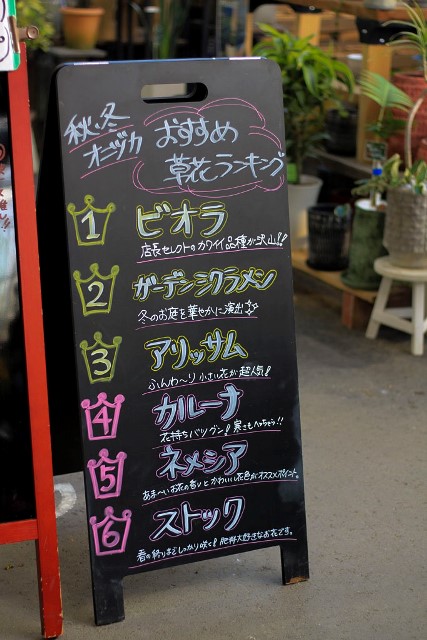 秋、冬
オニヅカ
おすすめ
草花ランキング
1 ビオラ
店長セレクトのカワイイ品種が沢山!!
2 ガーデンシクラメン
冬のお庭を華やかに演出
3 アリッサム
ふんわ〜り小さい花が超人気!
4 カルーナ
花持ちバツグン!寒さもへっちゃら!!
5 ネメシア
あま〜いお花の香りとかわいい花色がオススメポイント。
6 ストック
春の終りまでしっかり咲く!肥料大好きなお花です。